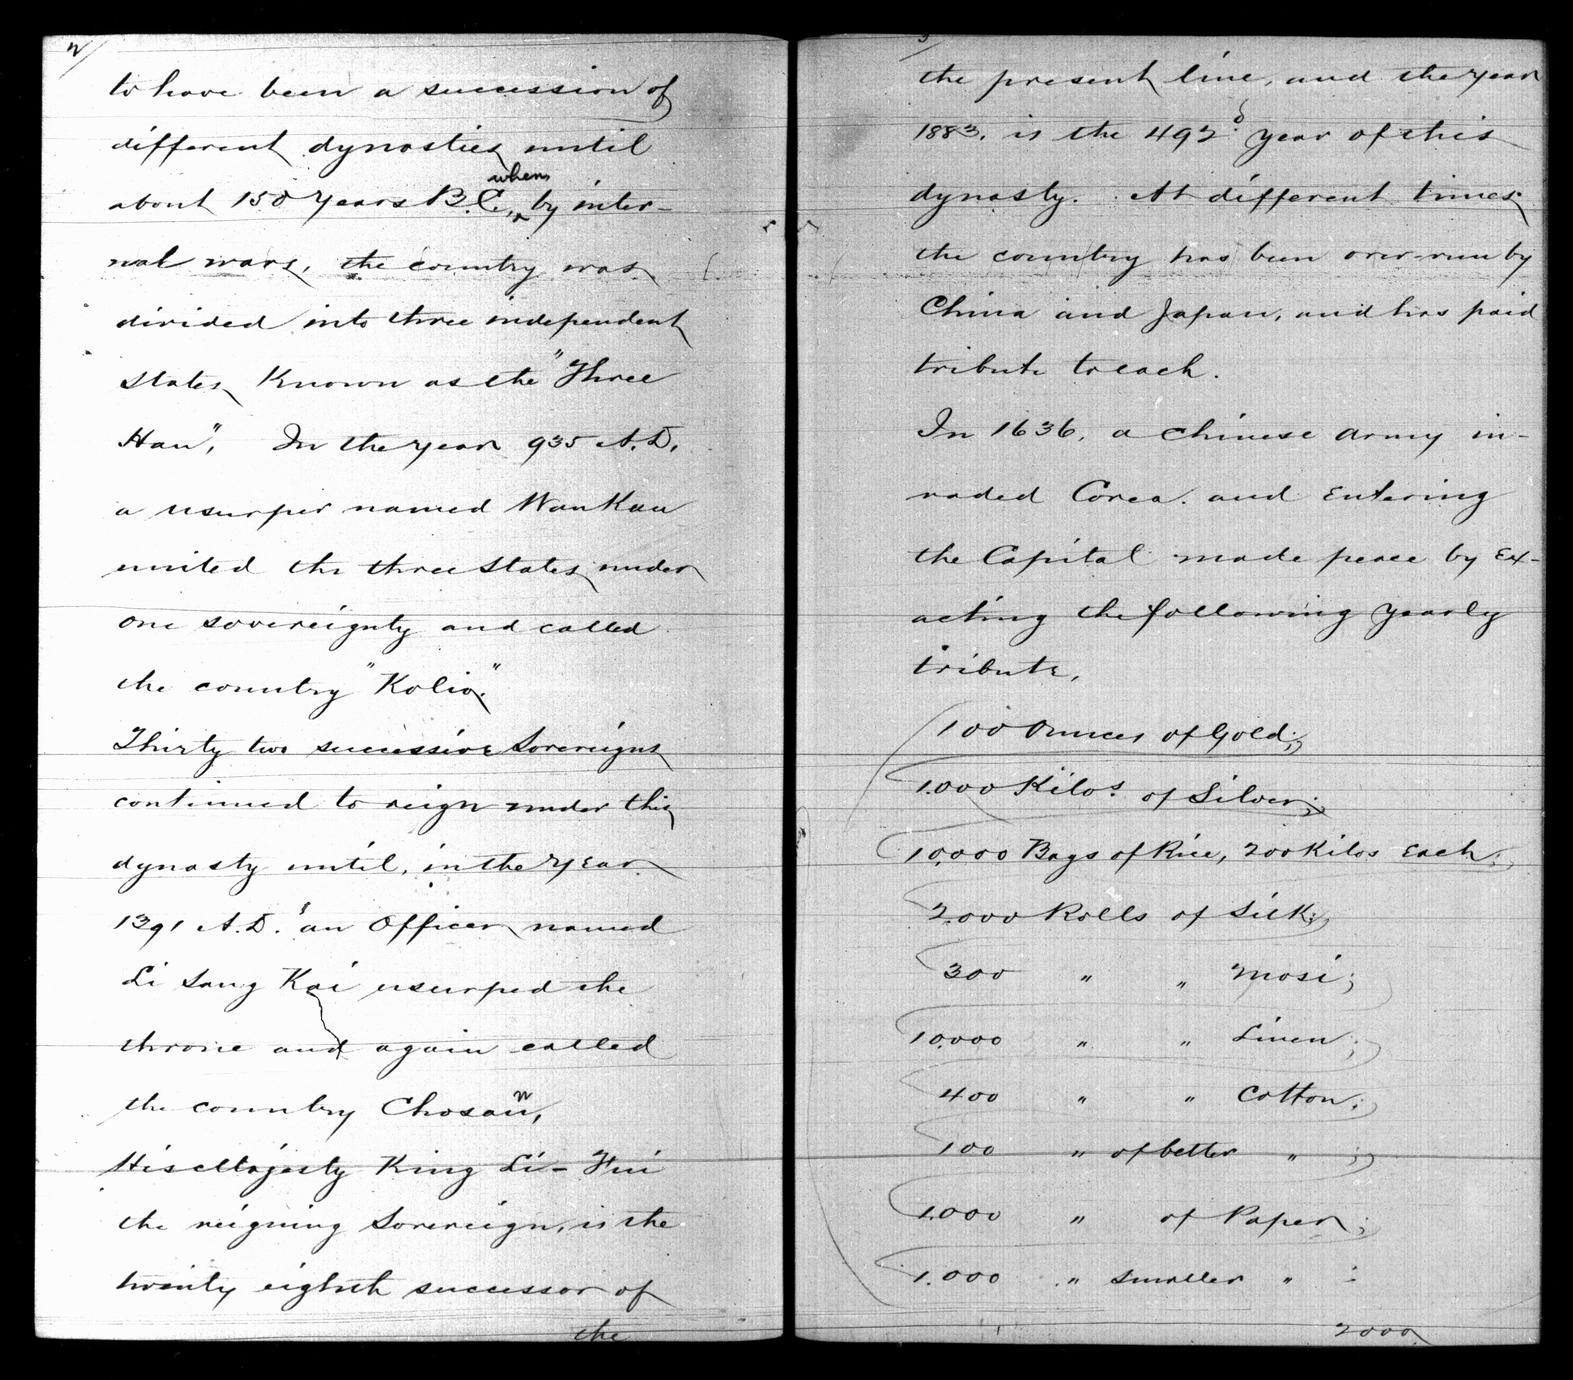 2/
to have been a succession of
different dynasties until
about 150 Years B.C., when by inter-
nal wars, the country was
divided into three independent
States Known as the "Three
Han". In the year 935 A.D.
a usurper named Wan Kan
united the three States under
one sovereignty and called
the country "Kolio".
Thirty two successive Sovereigns
continued to reign under this
dynasty until, in the Year
1391 A.D. an Officer named
Li Sang Kai usurped the
throne and again called
the country Chosan,
His Majesty King Li-Hui
the reigning Sovereign, is the
twenty eighth successor of
the
3
the present line, and the year
1883, is the 492d year of this
dynasty. At different times
the country has been over-run by
China and Japan, and has paid
tribute to each.
In 1636, a Chinese Army in-
vaded Corea. and Entering
the Capital made peace by Ex-
acting the following Yearly
tribute,
100 Ounces of Gold;
1.000 Kilos of Silver;
10.000 Bags of Rice, 200 Kilos Each;
2.000 Rolls of Silk;
300 " " Mosi;
10.000 " " Linen;
400 " " Cotton;
100 " of better " ;
1.000 " of Paper;
1.000 " Smaller " ;
2000